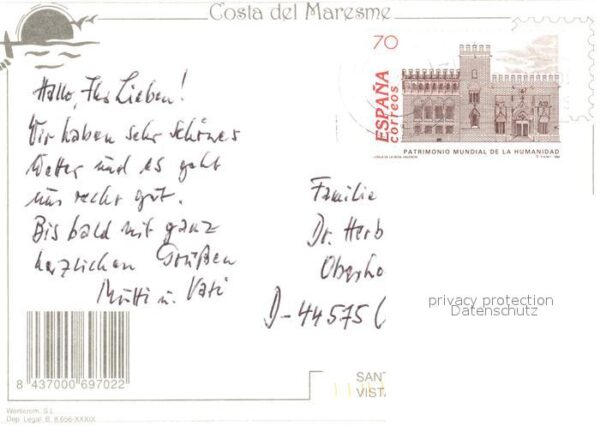 Costa del Maresme
70
ESPAÑA
correos
PATRIMONIO MUNDIAL DE LA HUMANIDAD
Hallo, Ihr Lieben!
Wir haben sehr schönes
Wetter und es geht
uns recht gut.
Bis bald mit ganz
herzlichen Grüßen
Mutti u. Vati
Familie
Dr. Herb
Oberho
D-44575
privacy protection
Datenschutz
8 437000 697022
SANT
VISTA
Dep. Legal, B. 8.656-XXXIX